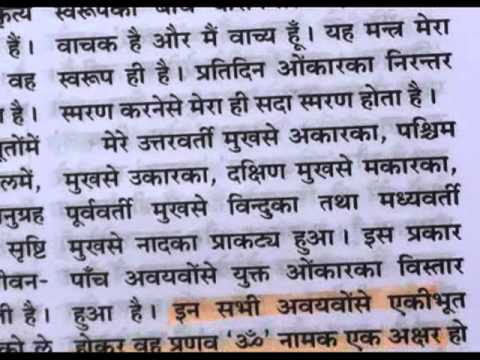 कृत्य स्वरूपका बोध
हैं। वाचक है और मैं वाच्य हूँ। यह मन्त्र मेरा
वह स्वरूप ही है। प्रतिदिन ओंकारका निरन्तर
ता है। स्मरण करनेसे मेरा ही सदा स्मरण होता है।
मूतोंमें मेरे उत्तरवर्ती मुखसे अकारका, पश्चिम
लमें, मुखसे उकारका, दक्षिण मुखसे मकारका,
नुग्रह पूर्ववर्ती मुखसे विन्दुका तथा मध्यवर्ती
सृष्टि मुखसे नादका प्राकट्य हुआ। इस प्रकार
ीवन- पाँच अवयवोंसे युक्त ओंकारका विस्तार
ती है। हुआ है। इन सभी अवयवोंसे एकीभूत
को ले होकर वह प्रणव ‘ॐ’ नामक एक अक्षर हो